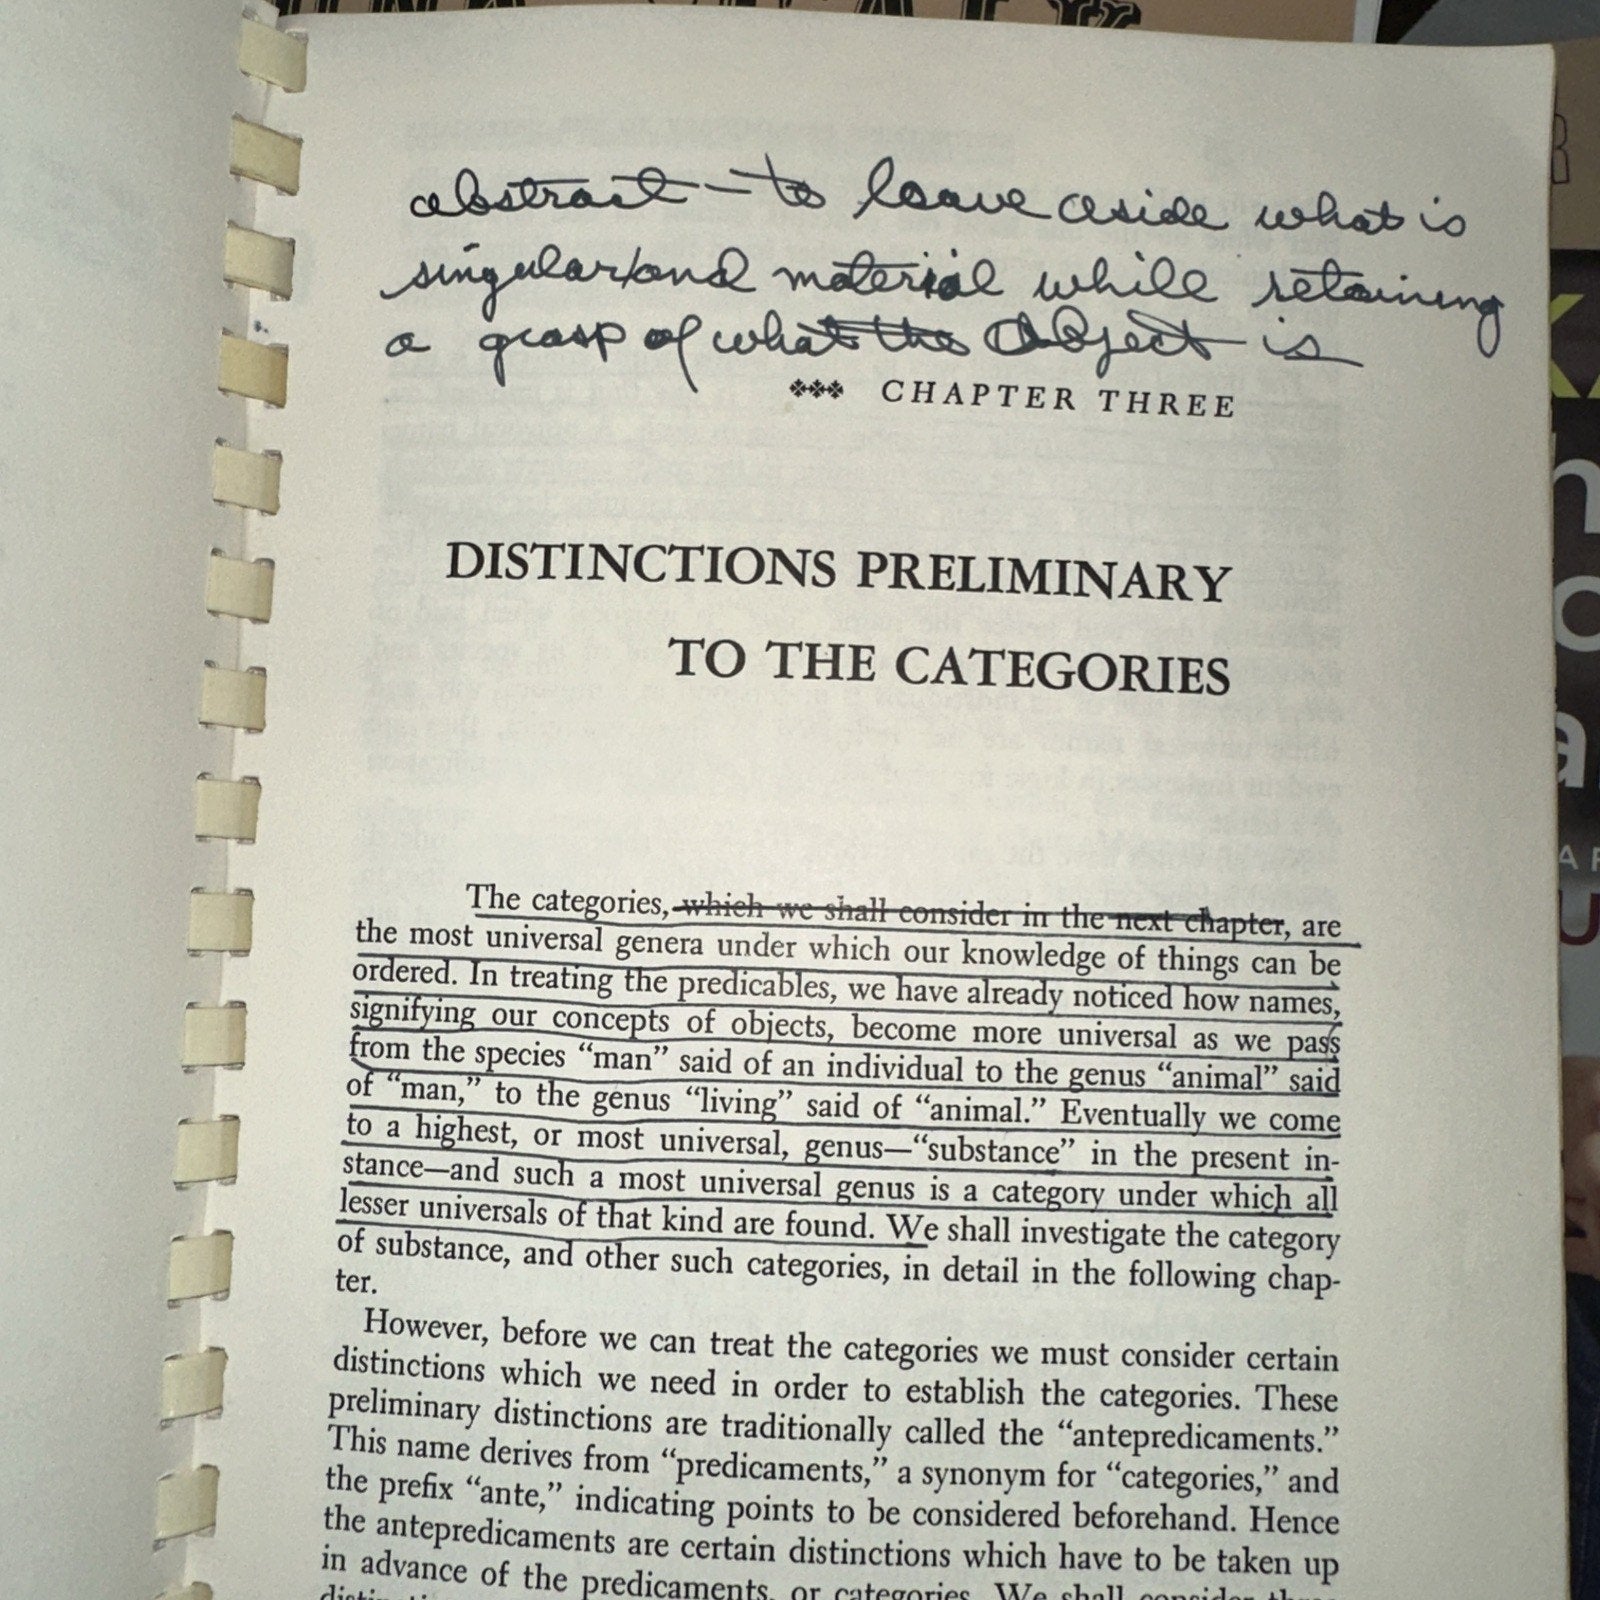 abstract – to leave aside what is
singular/and material while retaining
a grasp of what the object is
CHAPTER THREE
DISTINCTIONS PRELIMINARY
TO THE CATEGORIES
The categories, which we shall consider in the next chapter, are
the most universal genera under which our knowledge of things can be
ordered. In treating the predicables, we have already noticed how names,
signifying our concepts of objects, become more universal as we pass
from the species “man” said of an individual to the genus “animal” said
of “man,” to the genus “living” said of “animal.” Eventually we come
to a highest, or most universal, genus—“substance” in the present in-
stance—and such a most universal genus is a category under which all
lesser universals of that kind are found. We shall investigate the category
of substance, and other such categories, in detail in the following chap-
ter.
However, before we can treat the categories we must consider certain
distinctions which we need in order to establish the categories. These
preliminary distinctions are traditionally called the “antepredicaments.”
This name derives from “predicaments,” a synonym for “categories,” and
the prefix “ante,” indicating points to be considered beforehand. Hence
the antepredicaments are certain distinctions which have to be taken up
in advance of the predicaments, or categories. We shall consider